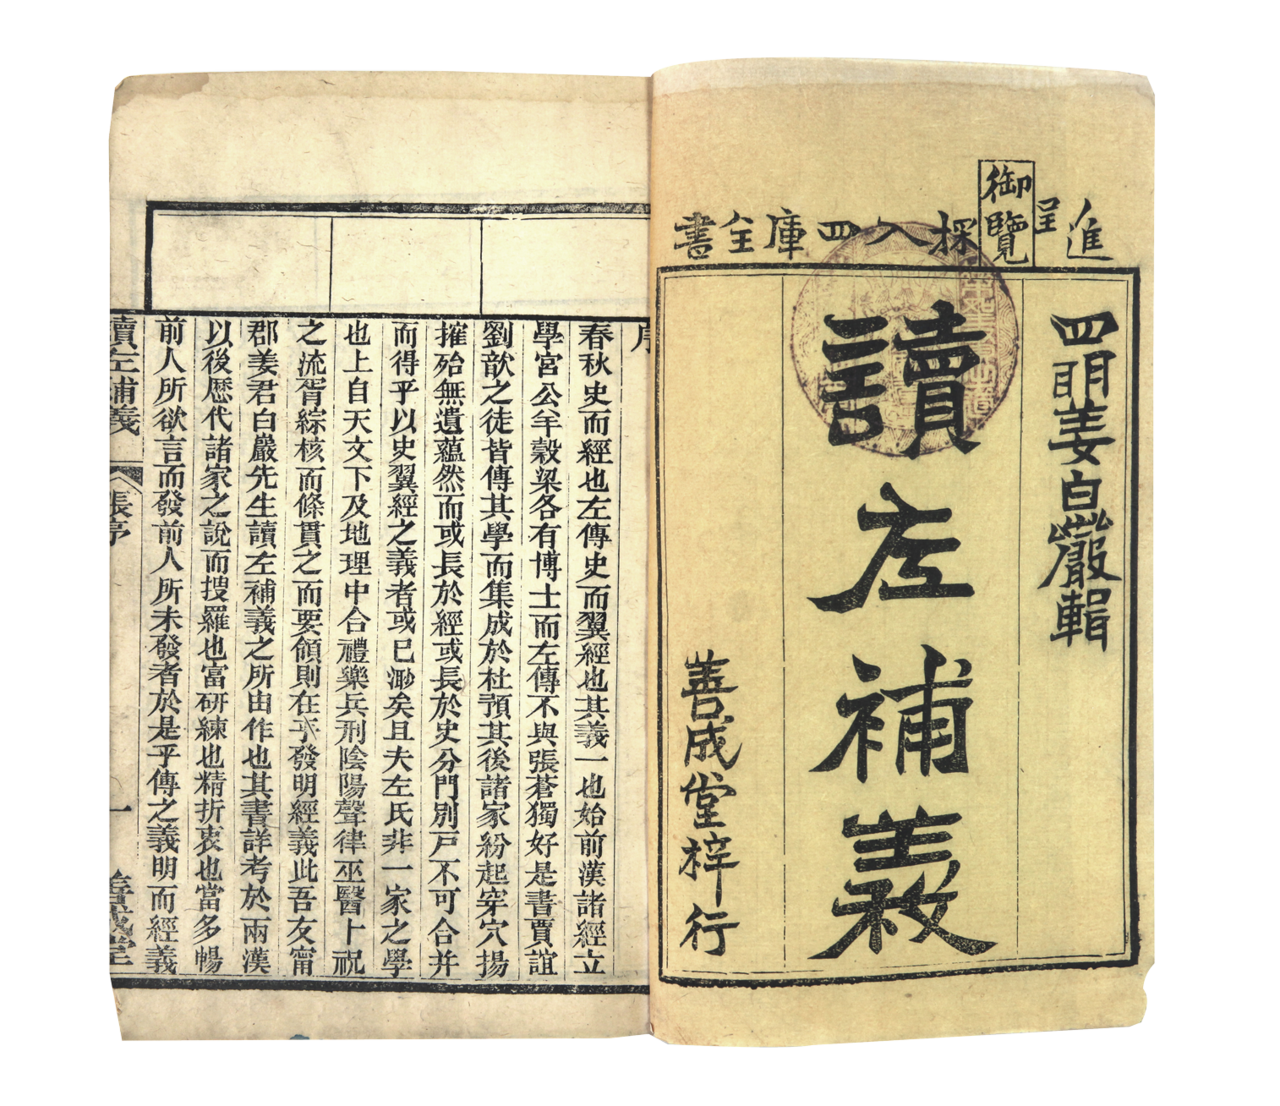 進呈御覽採入四庫全書
四明姜白巖輯
讀左補義
善成堂梓行
序
春秋史而經也左傳史而翼經也其義一也始前漢諸經立
學宮公羊穀梁各有博士而左傳不與張蒼獨好是書賈誼
劉歆之徒皆傳其學而集成於杜預其後諸家紛起穿穴揚
搉殆無遺蘊然而或長於經或長於史分門別戸不可合并
而得乎以史翼經之義者或已渺矣且夫左氏非一家之學
也上自天文下及地理中合禮樂兵刑陰陽聲律巫醫卜祝
之流胥綜核而條貫之而要領則在乎發明經義此吾友甯
郡姜君白巖先生讀左補義之所由作也其書詳考於兩漢
以後歷代諸家之說而搜羅也富研練也精折衷也當多暢
前人所欲言而發前人所未發者於是乎傳之義明而經義
讀左補義 張序 一 善成堂